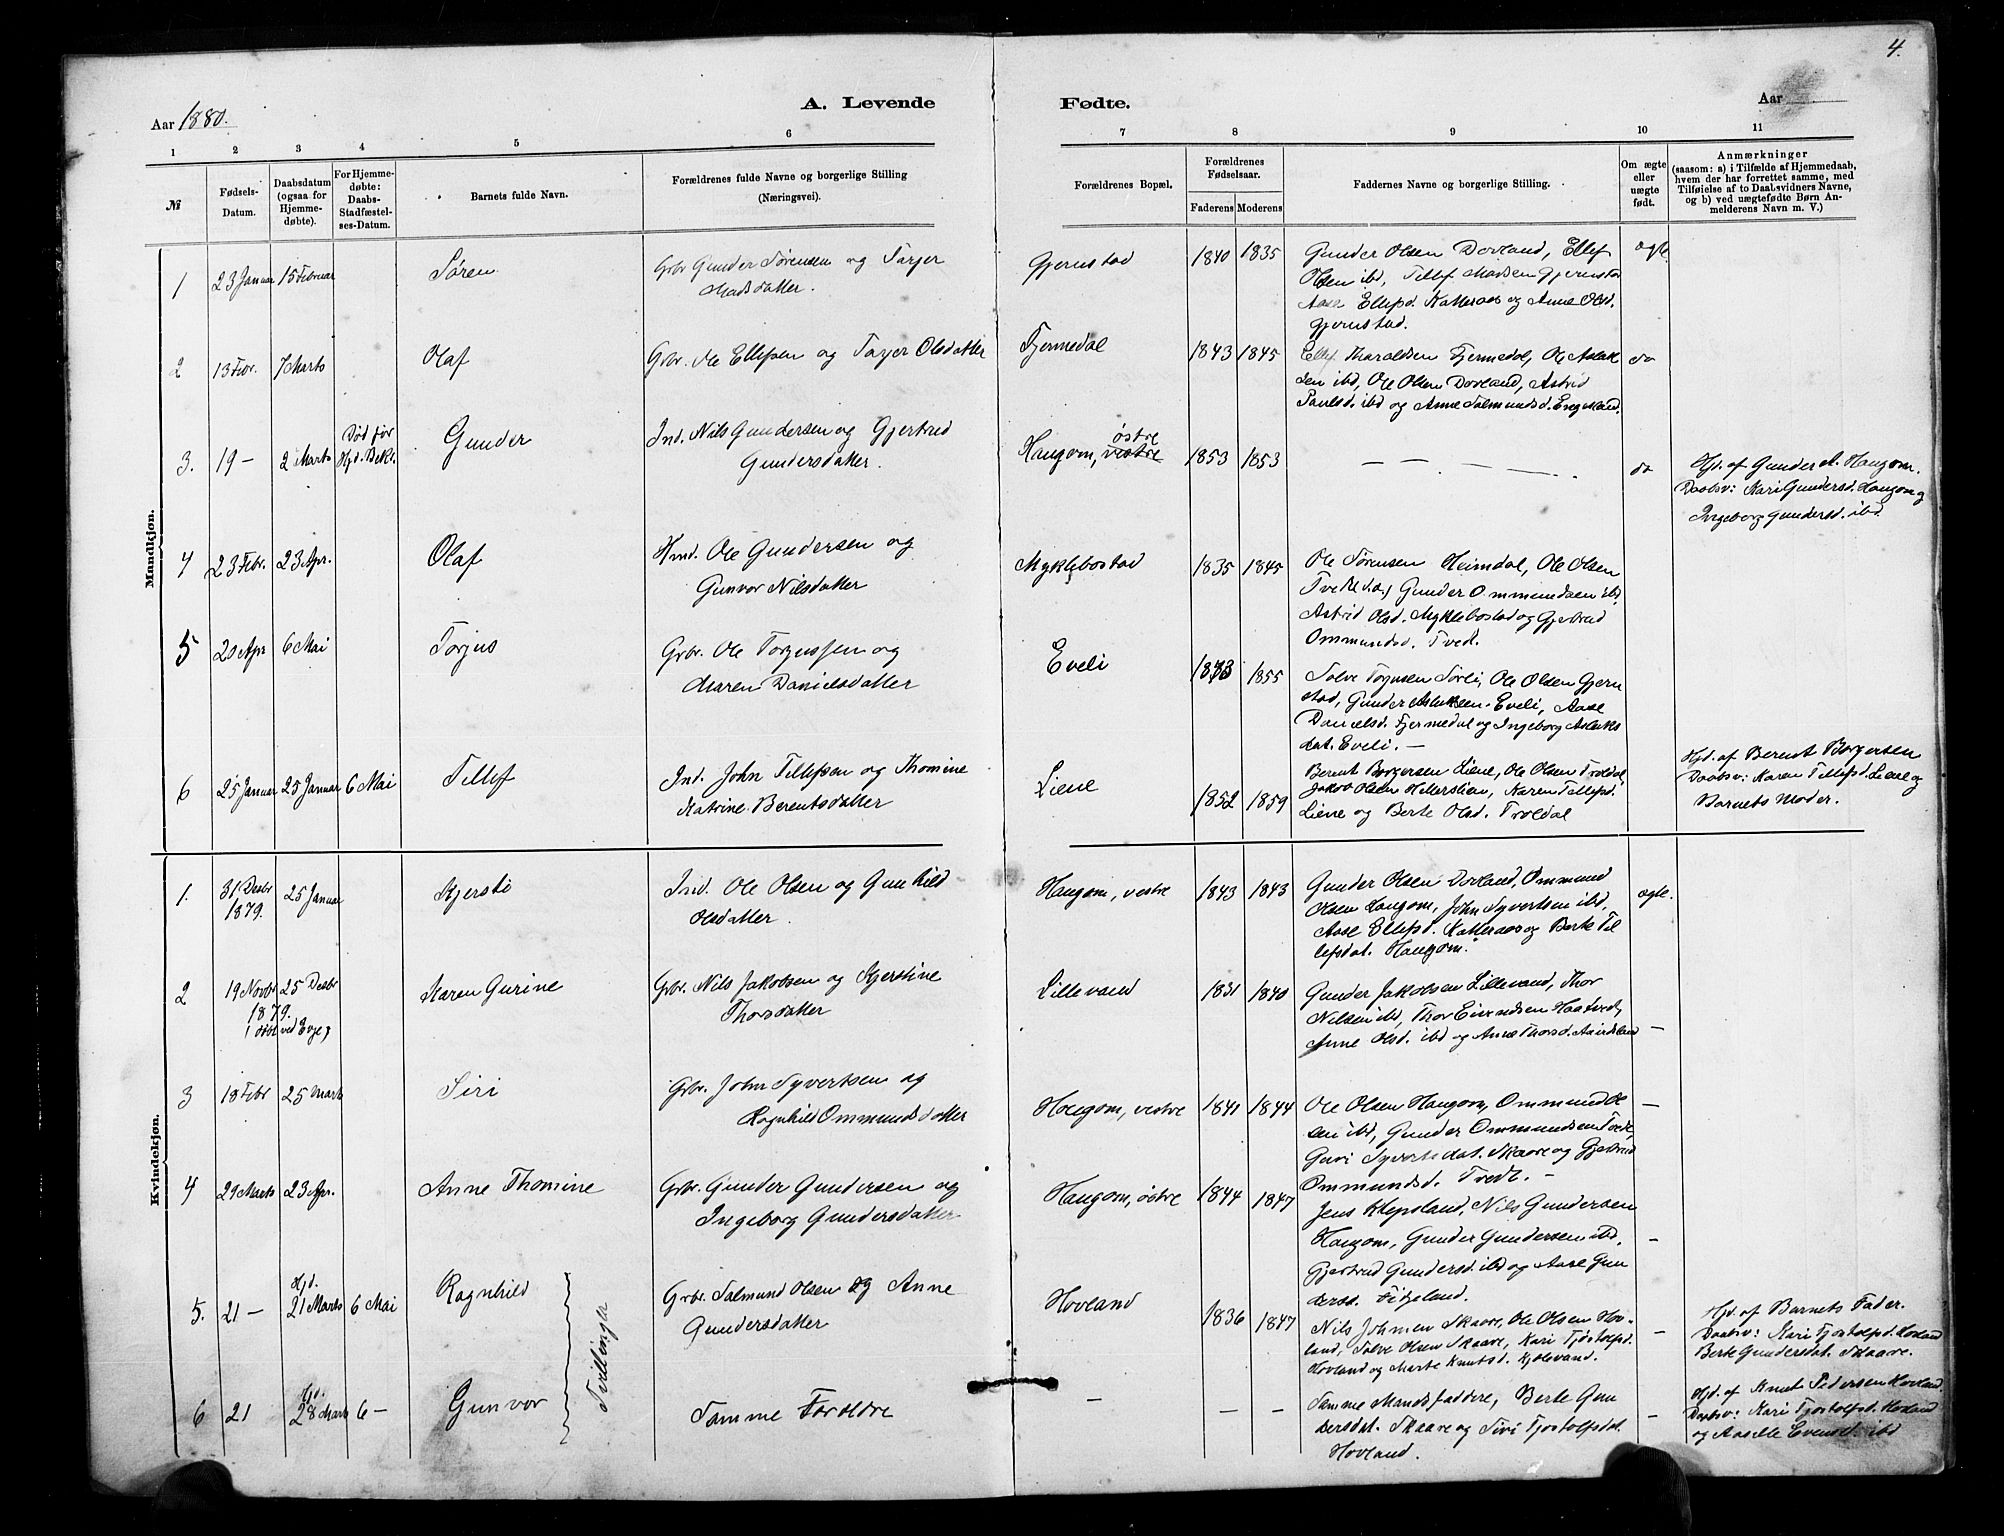 4.
Aar 1880.
A. Levende
Fødte.
Aar
1 2 3 4 5 6 7 8 9 10 11
№
Fødsels-
Datum.
Daabsdatum
(ogsaa for
Hjemme-
døbte).
For Hjemme-
døbte:
Daabs-
Stadfæstel-
ses-Datum.
Barnets fulde Navn.
Forældrenes fulde Navne og borgerlige Stilling
(Næringsvei).
Forældrenes Bopæl.
Forældrenes
Fødselsaar.
Faderens Moderens
Faddernes Navne og borgerlige Stilling.
Om ægte
eller
uægte
født.
Anmærkninger
(saasom: a) i Tilfælde af Hjemmedaab,
hvem der har forrettet samme, med
Tilføielse af to Daabsvidners Navne,
og b) ved uægtefødte Børn An-
melderens Navn m. V.)
Mandkjøn.
1 23 Januar 15 Februar Søren
Grbr Gunder Sørensen og Tarjer
Madsdatter.
Gjernstad 1840 1835
Gunder Olsen Dovland, Ellef
Olsen ibd, Tellef Madsen Gjernstad
Aase Ellefsd. Katteraas og Anne Olsd.
Gjernstad.
ægte
2 13 Febr. 7 Marts Olaf
Grbr. Ole Ellefsen og Tarjer Olsdatter
Fjermedal 1843 1845
Ellef Tharaldsen Fjermedal, Ole Aslak
sen ibd, Ole Olsen Dovland, Astrid
Paulsd. ibd og Anne Salmundsd. Engesland.
do
3. 19 — 2 Marts
Død før
Hjd. Bekr.
Gunder
Ind. Nils Gundersen og Gjertrud
Gundersdatter.
Haugom, vestre østre 1853 1853
— — — — .
do
Hjd. af Gunder A. Haugom.
Daabsv: Kari Gundersd. Haugom og
Ingeborg Gundersd. ibd
4 23 Febr. 23 Apr. Olaf
Hmd. Ole Gundersen og
Gunvor Nilsdatter
Myklebostad 1835 1845
Ole Sørensen Heimdal, Ole Olsen
Tvedt, Gunder Ommundsen ibd,
Astrid Olsd. Myklebostad og Gjertrud
Ommundsd. Tvedt.
5 20 Apr 6 Mai Torjus
Grbr. Ole Torjussen og
Maren Danielsdatter
Eveli 1843 1855
Salve Torjusen Sørli, Ole Olsen Gjern
stad, Gunder Aslaksen Eveli, Aase
Danielsd. Fjermedal og Ingeborg Aslaks
dat. Eveli. —
6 25 Januar 25 Januar 6 Mai Tellef
Ind. John Tellefsen og Thomine
Katrine Berentsdatter
Liene 1852 1859
Berent Borgersen Liene, Ole Olsen Troldal
Jakob Olsen Hillerslien, Karen Tellefsd.
Liene og Berte Olsd. Troldal
Hjd. af Berent Borgersen
Daabsv: Karen Tellefsd. Liene og
Barnets Moder.
Kvindekjøn.
1. 31 Decbr
1879.
25 Januar Kjersti
Ind. Ole Olsen og Gunhild
Olsdatter.
Haugom, vestre 1843 1843
Gunder Olsen Dovland, Ommund
Olsen Haugom, John Syvertsen ibd,
Aase Ellefsd. Katteraas og Berte Tel
lefsdat. Haugom.
ægte.
2 19 Novbr 25 Decbr
1879.
(døbt ved Evje)
Karen Gurine
Grbr. Nils Jakobsen og Kjerstine
Thorsdatter
Lillevand 1831 1840
Gunder Jakobsen Lillevand, Thor
Nilsen ibd, Thor Eivindsen Haatvedt,
Anne Olsd. ibd og Anne Thorsd.
—
3 18 Febr 25 Marts Siri
Grbr. John Syvertsen og
Ragnhild Ommundsdatter
Haugom, vestre 1841 1844
Ole Olsen Haugom, Ommund Ol
sen ibd, Gunder Ommundsen Tvedt,
Guri Syvertsdat. Skaare og Gjertrud
Ommundsd. Tvedt. —
—
4 29 Marts 23 Apr. Anne Thomine
Grbr. Gunder Gundersen og
Ingeborg Gundersdatter
Haugom, østre 1844 1847
Jens Klepsland, Nils Gundersen
Haugom, Gunder Gundersen ibd,
Gjertrud Gundersd. ibd og Aase Gun
dersd. Fidjeland.
—
5. 21 —
Hjd.
21 Marts 6 Mai Ragnhild
Tvillinger
Grbr. Salmund Olsen og Anne
Gundersdatter
Hovland 1836 1847
Nils Johnsen Skaare, Ole Olsen Hov-
land, Salve Olsen Skaare, Kari Tjøstolfsd.
Hovland og Marte Knutsd. Kjølevand.
—
Hjd. af Barnets Fader.
Daabsv: Kari Tjostolfsd. Hovland
Berte Gundersdat. Skaare.
6 21
Hjd.
28 Marts 6 — Gunvor
Samme Forældre
— — —
Samme Mandsfaddere, Berte Gun
dersdat. Skaare og Siri Tjostolfsdat.
Hovland.
—
Hjd. af Knut Pedersen Hovland.
Daabsv: Kari Tjostolfsd. Hovland
og Aasille Evensd. ibd